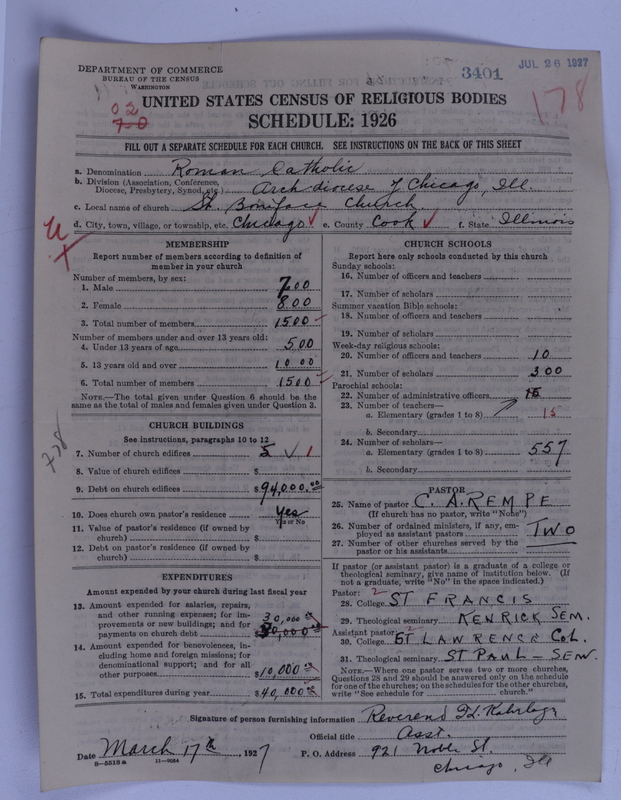 DEPARTMENT OF COMMERCE
BUREAU OF THE CENSUS
WASHINGTON
3401
JUL 26 1927
178
02
70
UNITED STATES CENSUS OF RELIGIOUS BODIES
SCHEDULE: 1926
FILL OUT A SEPARATE SCHEDULE FOR EACH CHURCH. SEE INSTRUCTIONS ON THE BACK OF THIS SHEET
a. Denomination Roman Catholic
b. Division (Association, Conference, Diocese, Presbytery, Synod, etc.) Archdiocese of Chicago, Ill.
c. Local name of church St. Boniface Church
d. City, town, village, or township, etc. Chicago ✓ e. County Cook ✓ f. State Illinois
MEMBERSHIP
Report number of members according to definition of
member in your church
Number of members, by sex:
1. Male 700
2. Female 800
3. Total number of members 1500
Number of members under and over 13 years old:
4. Under 13 years of age 500
5. 13 years old and over 1000
6. Total number of members 1500
NOTE.—The total given under Question 6 should be the
same as the total of males and females given under Question 3.
CHURCH BUILDINGS
See instructions, paragraphs 10 to 12
7. Number of church edifices ✓ 1
8. Value of church edifices $
9. Debt on church edifices $94,000.00
10. Does church own pastor's residence? yes
Yes or No
11. Value of pastor's residence (if owned by
church) $
12. Debt on pastor's residence (if owned by
church) $
EXPENDITURES
Amount expended by your church during last fiscal year
13. Amount expended for salaries, repairs,
and other running expenses; for im-
provements or new buildings; and for
payments on church debt 30,000
14. Amount expended for benevolences, in-
cluding home and foreign missions; for
denominational support; and for all
other purposes $10,000
15. Total expenditures during year $40,000
738
CHURCH SCHOOLS
Report here only schools conducted by this church
Sunday schools:
16. Number of officers and teachers
17. Number of scholars
Summer vacation Bible schools:
18. Number of officers and teachers
19. Number of scholars
Week-day religious schools:
20. Number of officers and teachers 10
21. Number of scholars 300
Parochial schools:
22. Number of administrative officers 15
23. Number of teachers—
a. Elementary (grades 1 to 8) 15
b. Secondary
24. Number of scholars—
a. Elementary (grades 1 to 8) 557
b. Secondary
PASTOR
25. Name of pastor C. A. REMPE
(If church has no pastor, write "None")
26. Number of ordained ministers, if any, em-
ployed as assistant pastors TWO
27. Number of other churches served by the
pastor or his assistants
If pastor (or assistant pastor) is a graduate of a college or
theological seminary, give name of institution below. (If
not a graduate, write "No" in the space indicated.)
Pastor: 2
28. College ST FRANCIS
29. Theological seminary KENRICK SEM.
Assistant pastor: 2
30. College ST LAWRENCE Col.
31. Theological seminary ST PAUL - SEM.
NOTE.—Where one pastor serves two or more churches,
Questions 28 and 29 should be answered only on the schedule
for one of the churches; on the schedules for the other churches,
write "See schedule for church."
Signature of person furnishing information Reverend
Official title Asst.
Date March 17th, 1927 P. O. Address 921 Noble St.
Chicago, Ill
8—5518a 11—9084